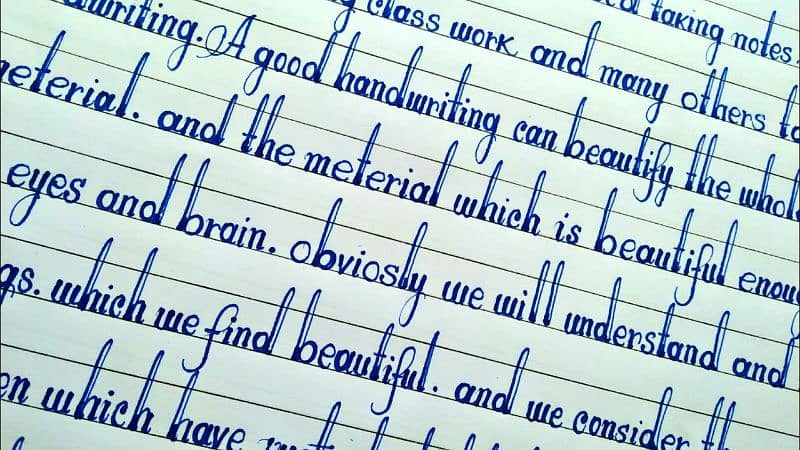 class work and many others
taking notes.
A good handwriting can beautify the
meterial. and the meterial which is beautiful
eyes and brain. obviosly we will understand and
which we find beautiful. and we consider
which have